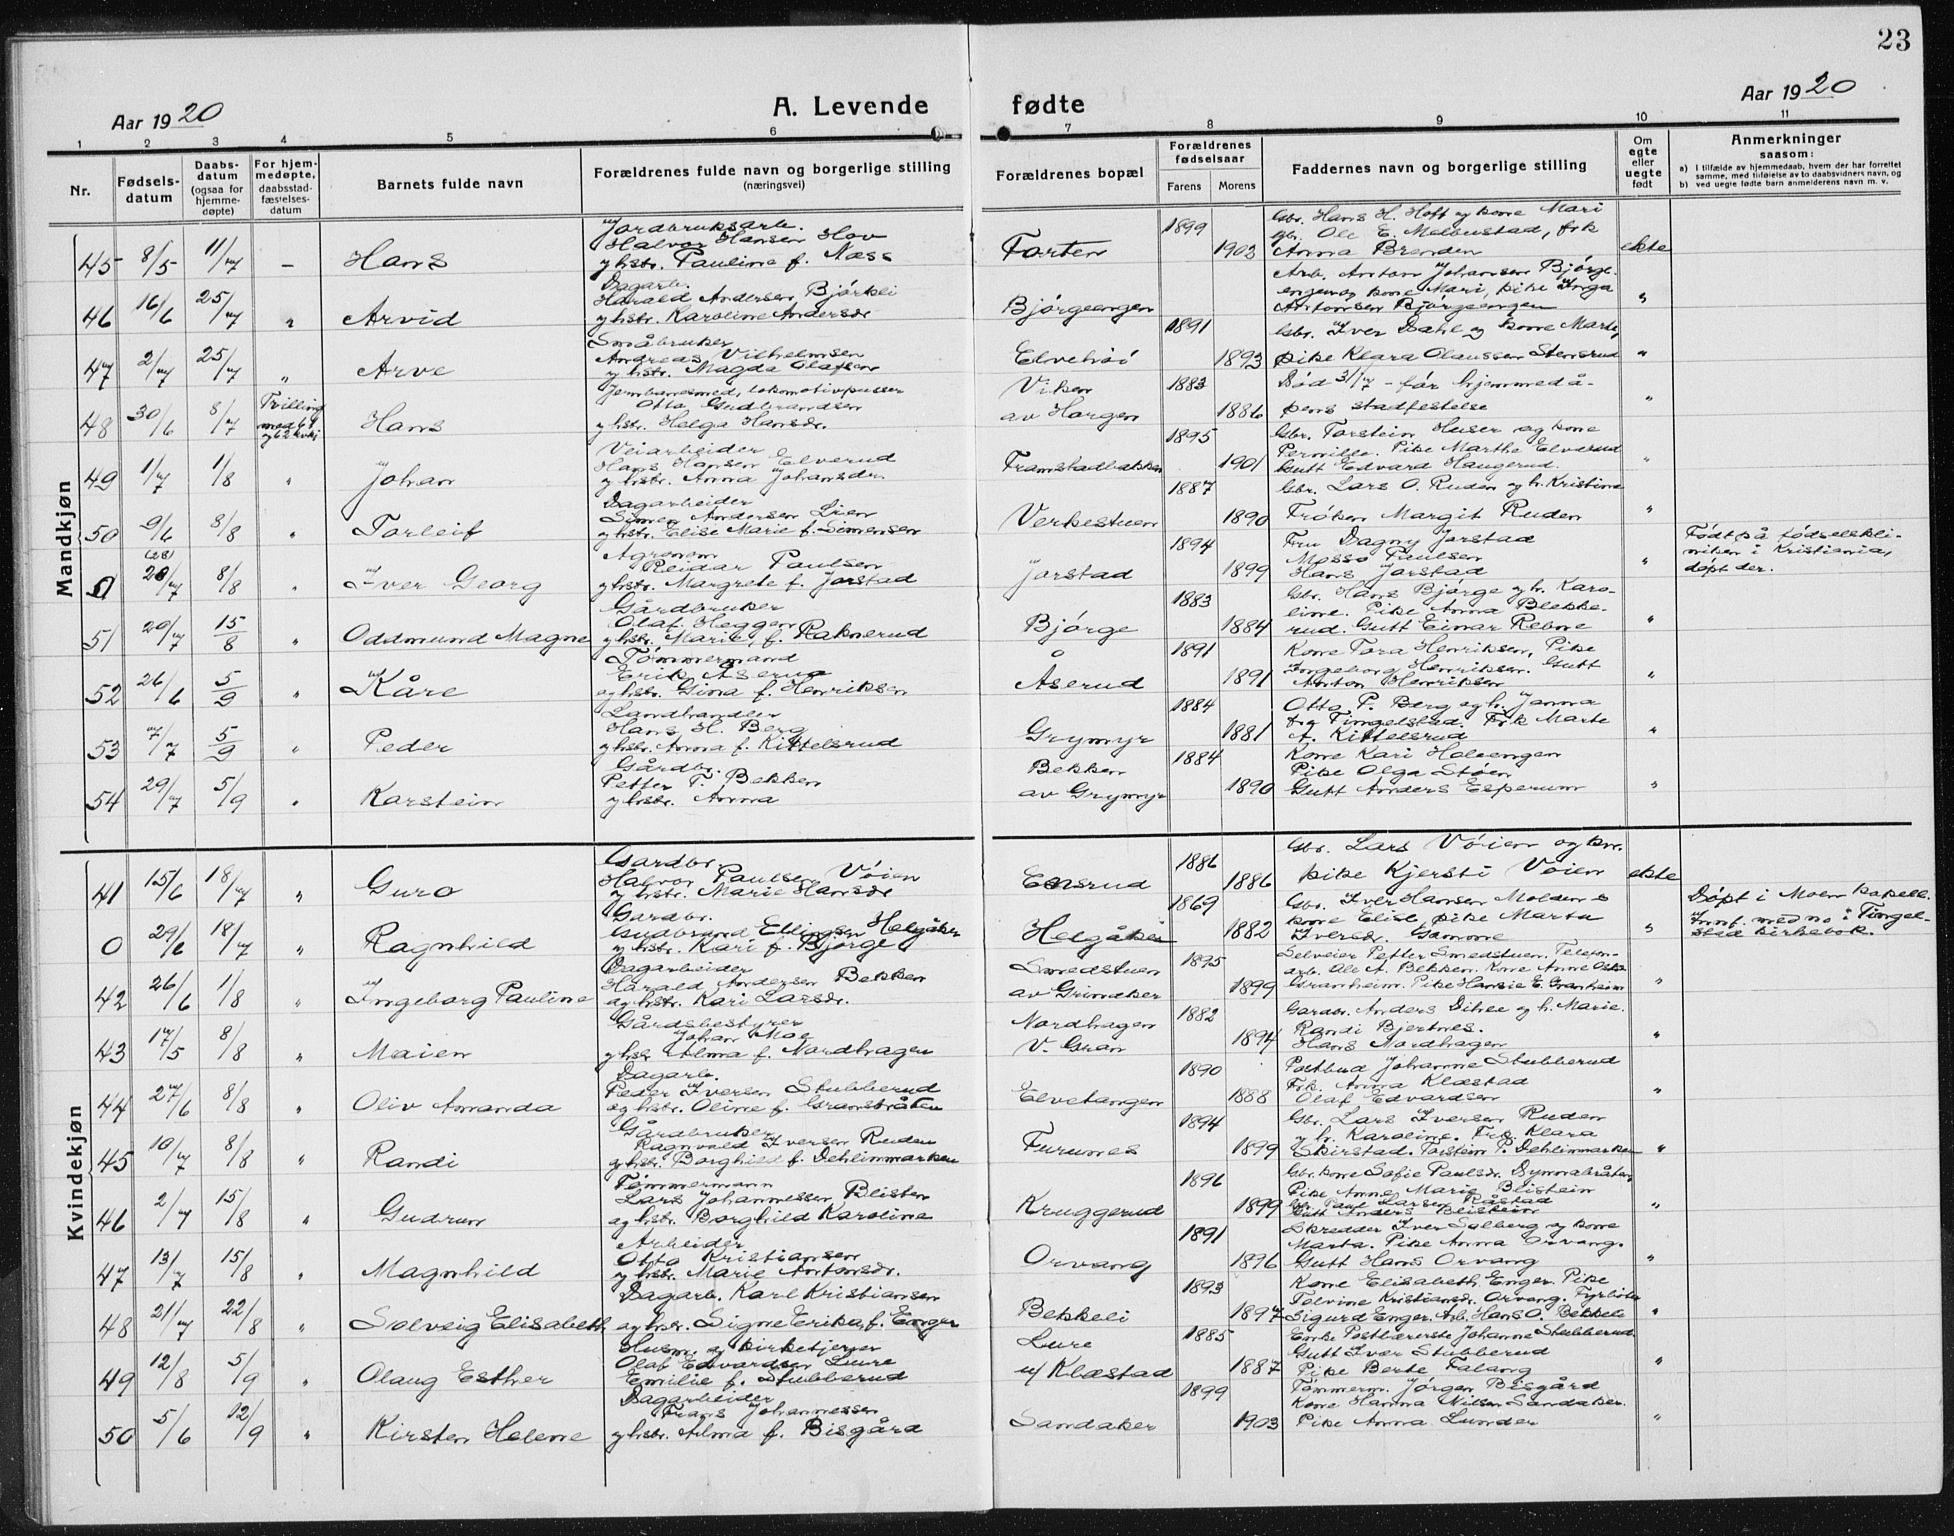 23
Aar 1920
A. Levende fødte
Aar 1920
1 2 3 4 5 6 7 8 9 10 11
Nr.
Fødsels-
datum
Daabs-
datum
(ogsaa for
hjemme-
døpte)
For hjem-
medøpte,
daabsstad-
fæstelses-
datum
Barnets fulde navn
Forældrenes fulde navn og borgerlige stilling
(næringsvei)
Forældrenes bopæl
Forældrenes
fødselsaar
Farens Morens
Faddernes navn og borgerlige stilling
Om
egte
eller
uegte
født
Anmerkninger
saasom:
a) I tilfælde av hjemmedaab, hvem der har forrettet
samme, med tilføielse av to daabsvidners navn, og
b) ved uegte fødte barn anmelderens navn m. v.
Mandkjøn
Jordbruksarb.
45 8/5 11/7 - Hans Halvor Hansen Hov
og hstr. Pauline f. Næss
Forten 1899 1903
Gbr. Hans H. Hoft og kone Mari
gbr. Ole E. Melbustad, frk
Anna Brenden
ekte
Dagarb.
46 16/6 25/7 " Arvid Harald Andersen Bjørkli
og hstr. Karoline Andersdr
Bjørgeengen
Arb. Anton Johansen Bjørge-
engen og kone Mari, pike Inga
Antonsen Bjørgeengen
"
Småbruker
47 2/7 25/7 " Arve Andreas Vilhelmsen
og hstr. Magda Olafsen
Elvehøi 1891 1893
Gbr. Iver Dahl og kone Marte,
pike Klara Olaussen Stensrud
"
Jernbanemed, lokomotivpusser
48 30/6 8/7 Tvilling
med
Hans Otto Gudbrandsen
og hstr. Helga Hansdr.
Viken
av Horgen 1883 1886
Død 31/7 - før hjemmedå-
pens stadfestelse
"
Veiarbeider
49 1/7 1/8 " Johan Hans Hansen Elverud
og hstr. Anna Johansdr.
Framstadbakken 1895 1901
Gbr. Torstein Huser og kone
Pernille. Pike Marthe Elverud
Gutt Edvard Haugerud.
"
Dagarbeider
50 9/6 8/8 " Torleif Simen Andersen Lien
og hstr. Elise Marie f. Simensen
Verkestuen 1887 1890
Gbr. Lars O. Ruden og h. Kristine
Frøken Margit Ruden
"
Agronom
0 (28) 28/7 8/8 " Iver Georg Reidar Paulsen
og hstr. Margrete f. Jorstad
Jorstad 1894 1899
Fru Dagny Jorstad
Mosso Paulsen
Hans Jorstad
"
Født på fødselskli-
niken i Kristiania,
døpt der.
Gårdbruker
51 20/7 15/8 " Oddmund Magne Olaf Heggen
og hstr. Marie f. Raknerud
Bjørge 1883 1884
Gbr. Hans Bjørge og h. Karo-
line. Pike Anna Blekke-
rud. Gutt Einar Rekne
"
Tømmermand
52 26/6 5/9 " Kåre Erik Åserud
og hstr. Gina f. Henriksen
Åserud 1891 1891
Kone Tora Henriksen, Pike
Ingeborg Henriksen. Gutt
Anton Henriksen
"
Landhandler
53 7/7 5/9 " Peder Hans H. Berg
og hstr. Anna f. Kittelsrud
Grymyr 1884 1881
Otto P. Berg og h. Janna
Tingelstad. Frk Marte
A. Kittelsrud
"
Gårdbr.
54 29/7 5/9 " Karstein Petter T. Bekken
og hstr. Anna
Bekken
av Grymyr 1884 1890
Kone Kari Helvengen
Pike Olga Støen
Gutt Anders Esperum
"
Kvindekjøn
Gardbr.
41 15/6 18/7 " Guro Halvor Paulsen Vøien
og hstr. Marie Hansdr
Ensrud 1886 1886
Gbr. Lars Vøien og kone.
pike Kjersti Vøien
ekte
Gardbr.
0 29/6 18/7 " Ragnhild Gudbrand Ellingsen Helgåker
og hstr. Kari f. Bjørge
Helgåker 1869 1882
Gbr. Iver Hansen Molden &
kone Elise, pike Marta
Iversdr. Gamme
"
Døpt i Moen kapell.
Innf. med no i Tingel-
stad kirkebok.
Dagarbeider
42 26/6 1/8 " Ingeborg Pauline Harald Andersen Bekken
og hstr. Kari Larsdr.
Smedstuen
av Grinaker 1895 1899
Selveier Petter Smedstuen. Telefon-
arb. Ole A. Bekken. Kone Anne
Granheim. Pike Hansie E. Granheim
"
Gårdsbestyrer
43 17/5 8/8 " Maien Johan Moe
og hstr Alma f. Nordhagen
Nordhagen
V. Gran 1882 1894
Gardbr. Anders Dihle og h. Marie.
Randi Bjertnes.
Hans Nordhagen
"
Dagarb.
44 27/6 8/8 " Oliv Amanda Peder Iversen Stubberud
og hstr. Oline f. Gransbråten
Elvetangen 1890 1888
Postbud Johanne Stubberud
Frk. Anna Klæstad
Olaf Edvardsen
"
Gårdbruker
45 10/7 8/8 " Randi Ragnvald Iversen Ruden
og hstr. Borghild f. Dehlinmarken
Furunes 1894 1899
Gbr. Lars Iversen Ruden
og h. Karoline. Frk. Klara
Skirstad. Torstein P. Dehlinmarken
"
Tømmermann
46 2/7 15/8 " Gudrun Lars Johannessen Blisten
og hstr. Borghild Karoline
Kruggerud 1896 1899
Gbr. kone Sofie Paulsdr. Dynnabråten
Pike Anne Marie Blistein
Gbr. Paul Larsen Råstad
Gutt Anders Blistein
"
Arbeider
47 13/7 15/8 " Magnhild Otto Kristiansen
og hstr. Marie Antonsdr.
Orvang 1891 1896
Skredder Iver Solberg og kone
Marta. Pike Anna Orvang.
Gutt Hans Orvang
"
48 21/7 22/8 " Solveig Elisabeth Dagarb. Karl Kristiansen
og hstr. Signe Erika f. Enger
Bekkeli 1893 1897
Kone Elisabeth Enger. Pike
Tolvine Kristiansdr. Orvang.
Sigurd Enger. Arb. Hans O. Bekkeli
"
Husm. og kirketjener
49 12/8 5/9 " Olaug Esther Olaf Edvardsen Lure
Emilie f. Stubberud
Lure
u/ Klæstad 1885 1887
Enke Postbærerste Johanne Stubberud.
Gutt Iver Stubberud
Pike Berte Falang
"
Dagarbeider
50 5/6 12/9 " Kirsten Helene Frans Johannessen
og hstr. Alma f. Bisgård
Sandaker 1899 1903
Tømmerm. Jørgen Bisgård
Kone Hanna Nilsen Sandaker.
Pike Anna Lunder
"